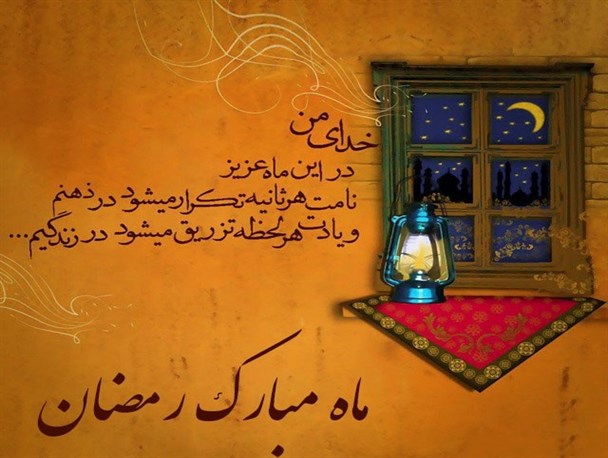 خدای من
در این ماه عزیز
نامت هر ثانیه تکرار میشود در ذهنم
و یادت هر لحظه تزریق میشود در زندگیم...
ماه مبارک رمضان